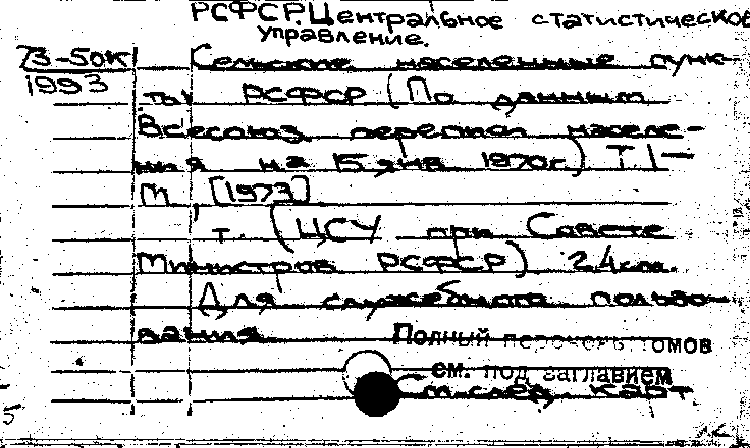 РСФСР. Центральное статистическое
управление.
73-50к
1993
Сельские населенные пунк-
ты РСФСР (По данным
Всесоюз переписи населе-
ния на 15 янв 1970г.) Т. 1-
М, [1973]
т. (ЦСУ при Совете
Министров РСФСР) 24см.
Для служебного пользо-
вания
Полный перечень томов
см. под заглавием
См. след. карт.
5